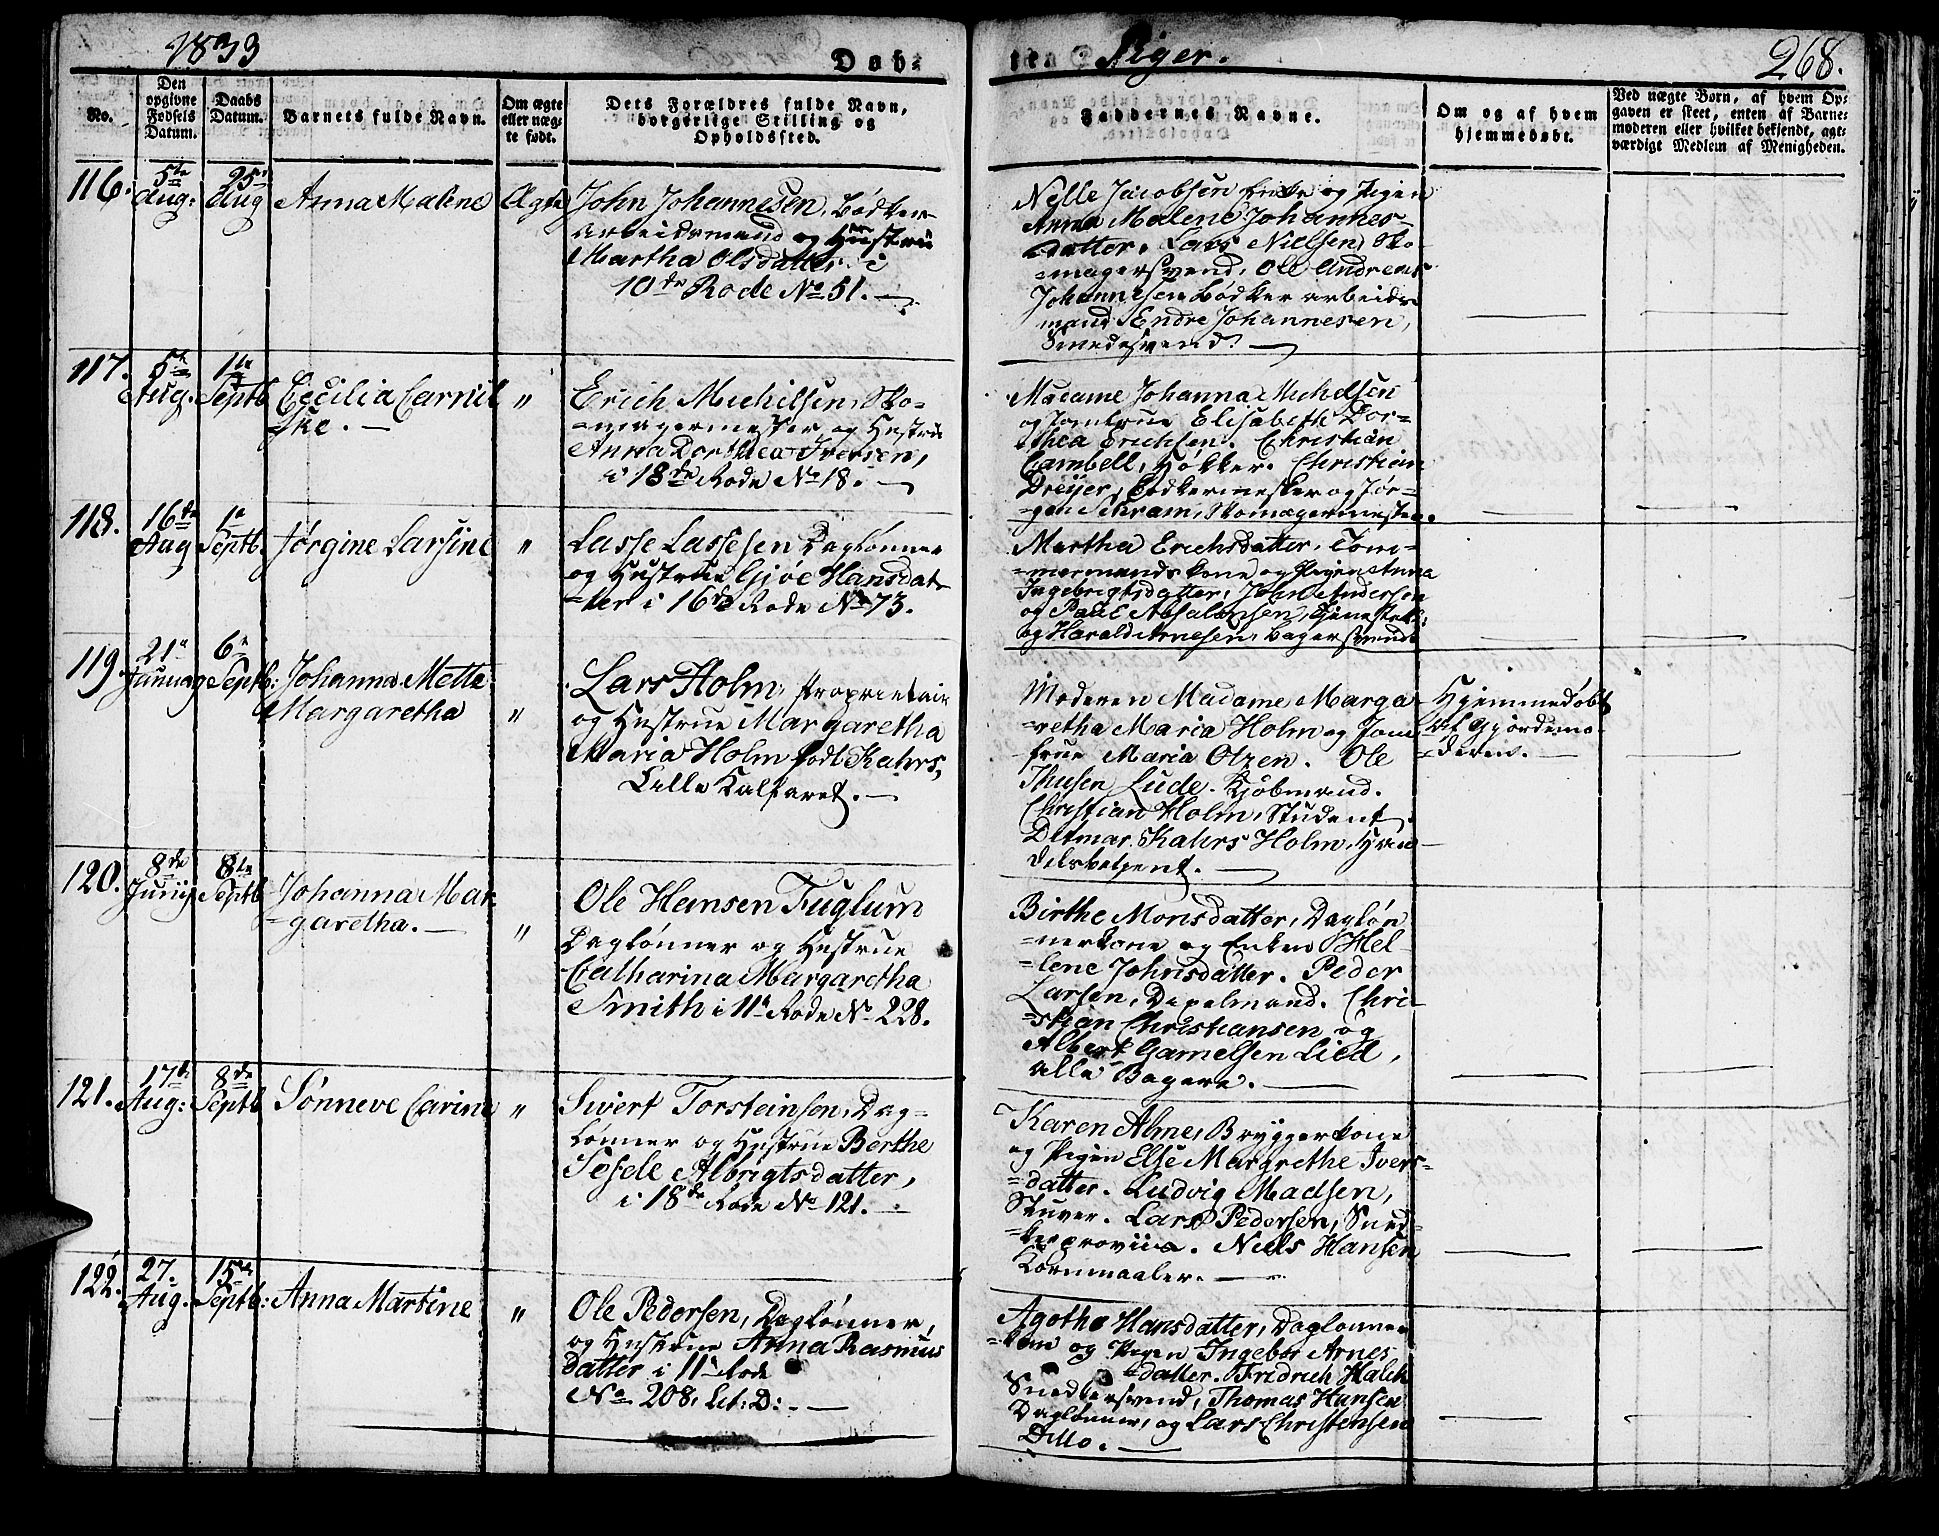 1833
Døb-
te Piger.
268.
No.
Den
opgivne
Fødsels
Datum.
Daabs
Datum.
Barnets fulde Navn.
Om ægte
eller uæg-
te født.
Dets Forældres fulde Navn,
borgerlige Stilling og
Opholdssted.
Faddernes Navne.
Om og af hvem
hjemmedøbt.
Ved uægte Børn, af hvem Op-
gaven er skeet, enten af Barne-
moderen eller hvilket bekjendt, agt-
værdigt Medlem af Menigheden.
116.
5te
Aug:
25
Aug
Anna Malene
Ægte
John Johannesen, Bødker-
arbeidsmand og Hustrue
Martha Olsdatter i
10de Rode No 51.
Nille Jacobsen Enke og Pigen
Anna Malene Johannes-
datter, Lars Nielsen, Sko-
magersvend, Ole Andreas
Johannesen Bødker arbeids-
mand, Endre Johannesen,
Smedesvend.
117.
5te
Aug.
1te
Septb
Cecilia Carnil
ske.
"
Erich Michelsen, Sko-
magermester og Hustrue
Anna Dorthea Iversen,
i 18de Rode No 18.
Madame Johanna Michelsen
og Jomfrue Elisabeth Dor-
thea Erichsen. Christian
Cambell, Høkker. Christian
Dreÿer, Bødkermester og Jør-
gen Schram, Skomagermester.
118.
16de
Aug
1e
Septb.
Jørgine Larsine
"
Lasse Lassesen Daglønner
og Hustrue Gjøe Hansdat-
ter i 16de Rode No 73.
Martha Erichsdatter, Tøm-
mermandskone og Pigen Anna
Ingebrigtsdatter, John Andersen
og Paul Absalonsen, Tjenestek:
og Harald Arnesen, Bagersvend
119.
21e
Januar
6te
Septb:
Johanna Metta
Margaretha
"
Lars Holm, Proprietair
og Hustrue Margaretha
Maria Holm født Kahrs,
Lille Kalfaret.
Moderen Madame Marga-
retha Maria Holm og Jom-
frue Maria Olzen. Ole
Thusen Lude. Kjøbmand.
Christian Holm, Student
Ditmar Kahrs Holm, Han-
delsbetjent.
Hjemmedøbt
af Gjordemo-
deren.
120.
8de
Junij
8de
Septb
Johanna Mar-
garetha.
"
Ole Hansen Fuglum
Daglønner og Hustrue
Catharina Margaretha
Smith i 11e Rode No 228.
Birthe Monsdatter, Dagløn-
nerkone og Enken Hel-
lene Johnsdatter. Peder
Larsen, Chri-
stian Christiansen og
Albert Gamelsen Lied,
alle Bagere.
121.
17de
Aug:
8de
Septb
Sønneve Carine
"
Sivert Torsteinsen, Dag-
lønner og Hustrue Berthe
Sesele Albrigtsdatter,
i 18de Rode No 121.
Karen Alme, Bryggerkone
og Pigen Else Margrethe Ivers-
datter. Ludvig Madsen,
Stuver. Lars Pedersen, Sned-
Niels Hansen
Kornmaaler.
122.
27.
Aug.
15de
Septb:
Anna Martine
"
Ole Pedersen, Daglønner,
og Hustrue Anna Rasmus
datter i 11e Rode
No 208. Lit: D:
Agothe Hansdatter, Daglønner-
kone og Pigen Ingebor Arnes-
datter. Fridrich Halck
Snedkersvend, Thomas Hansen
Daglønner, og Lars Christensen
Ditto.